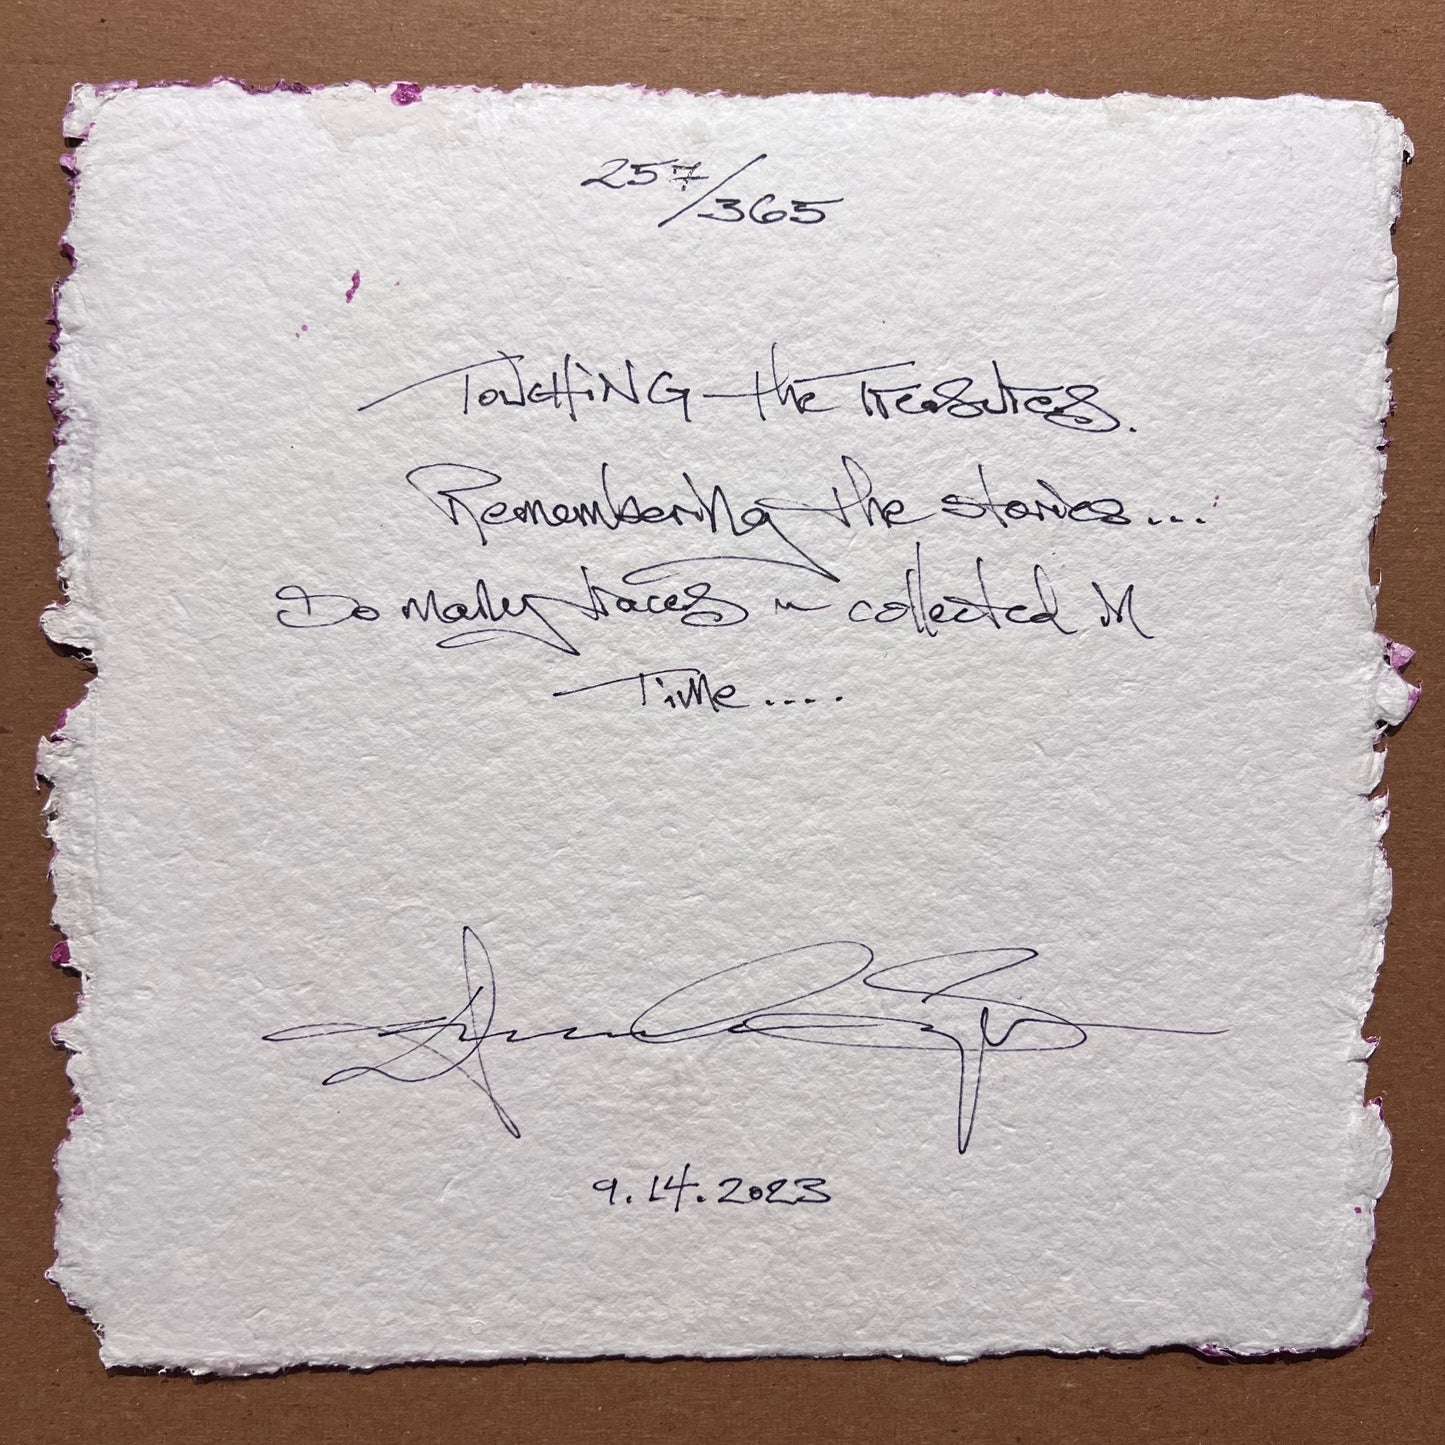 257/365
Touching the Treasures.
Remembering the stories...
So many traces ~ collected in
Time.....
9.14.2023